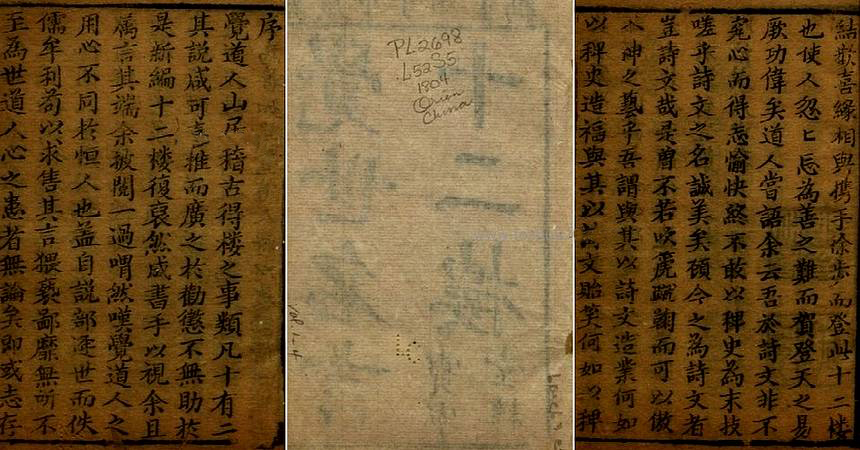 序
覺道人山居稽古得楼之事類凡十有二
其説咸可喜推而廣之於勸懲不無助於
是新編十二楼復裒然成書手以視余且
属言其端余披閱一過喟然嘆覺道人之
用心不同於恒人也蓋自説部逐世而佚
儒牟利苟以求售其言猥褻鄙靡無所不
至為世道人心之患者無論矣即或志存
PL2698
.L52S5
1804
Orien
China
結歡喜緣相與携手徐步而登此十二楼
也使人忽匕忘為善之難而賀登天之易
厥功偉矣道人嘗語余云吾於詩文非不
究心而得志愉快終不敢以稗史為末技
嗟乎詩文之名誠美矣顧今之為詩文者
豈詩文哉是曾不若吹虎蹴鞠而可以傲
神之藝乎吾謂與其以詩文造業何如
以稗史造福與其以文貽笑何如以稗